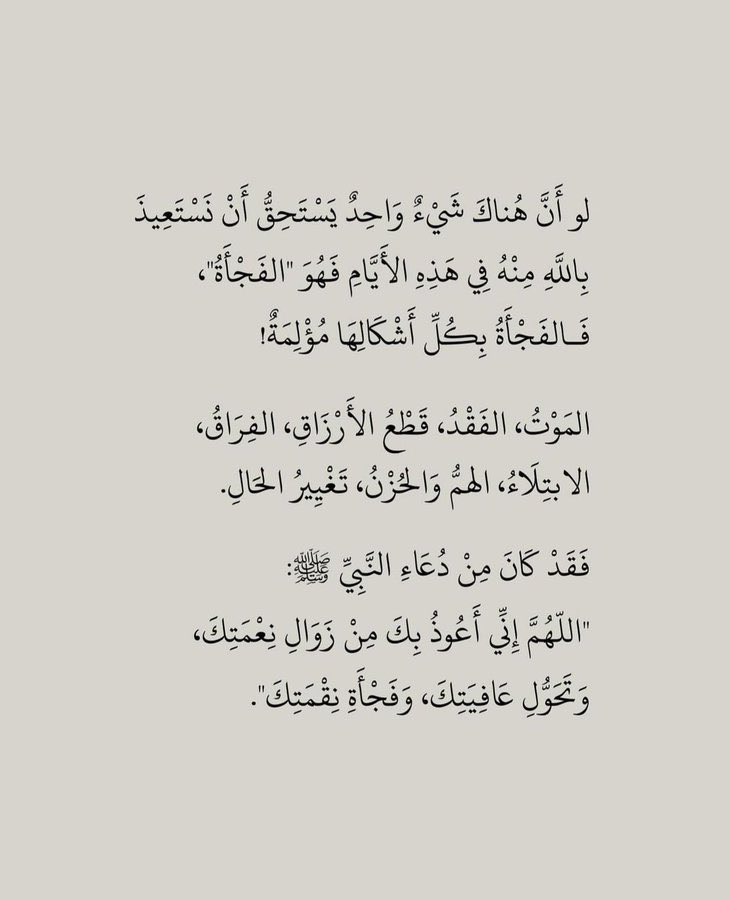 لو أَنَّ هُناكَ شَيْءٌ وَاحِدٌ يَسْتَحِقُّ أَنْ نَسْتَعِيذَ
بِاللَّهِ مِنْهُ فِي هَذِهِ الأَيَّامِ فَهُوَ "الفَجْأَةُ"،
فَــالفَجْأَةُ بِكُلِّ أَشْكَالِهَا مُؤْلِمَةٌ!
المَوْتُ، الفَقْدُ، قَطْعُ الأَرْزَاقِ، الفِرَاقُ،
الابتِلَاءُ، الهمُّ وَالحُزْنُ، تَغْيِيرُ الحَالِ.
فَقَدْ كَانَ مِنْ دُعَاءِ النَّبِيِّ ﷺ:
"اللّهُمَّ إِنِّي أَعُوذُ بِكَ مِنْ زَوَالِ نِعْمَتِكَ،
وَتَحَوُّلِ عَافِيَتِكَ، وَفَجْأَةِ نِقْمَتِكَ".